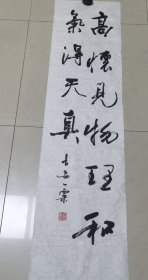 高怀见物理和
氣得天真